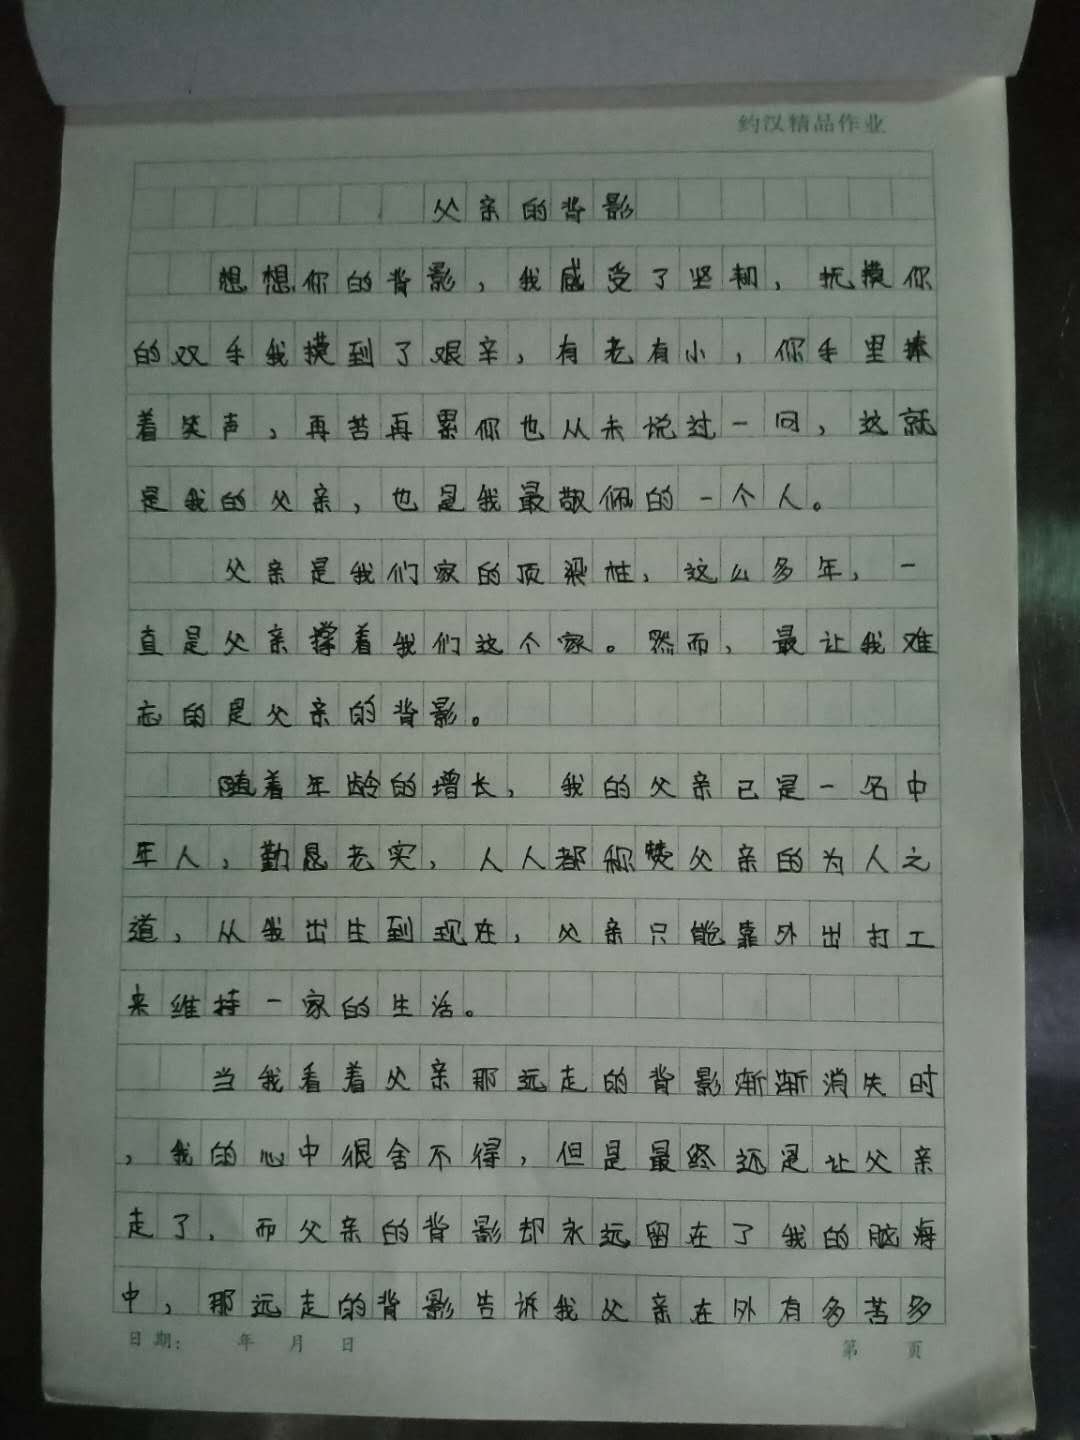 约汉精品作业
父亲的背影
想想你的背影，我感受了坚韧，抚摸你
的双手我摸到了艰辛，有老有小，你手里捧
着笑声，再苦再累你也从未说过一问，这就
是我的父亲，也是我最敬佩的一个人。
父亲是我们家的顶梁柱，这么多年，一
直是父亲撑着我们这个家。然而，最让我难
忘的是父亲的背影。
随着年龄的增长，我的父亲已是一名中
年人，勤恳老实，人人都称赞父亲的为人之
道，从我出生到现在，父亲只能靠外出打工
来维持一家的生活。
当我看着父亲那远走的背影渐渐消失时
，我的心中很舍不得，但是最终还是让父亲
走了，而父亲的背影却永远留在了我的脑海
中，那远走的背影告诉我父亲在外有多苦多
日期： 年 月 日 第 页